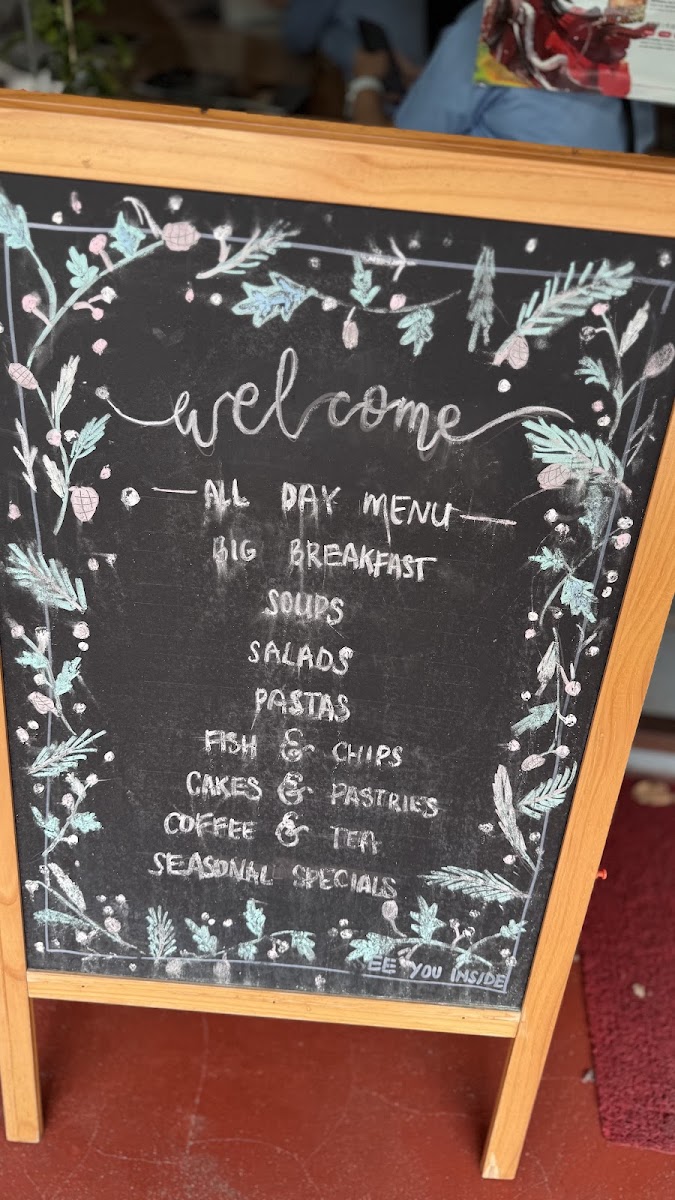 welcome
ALL DAY MENU
BIG BREAKFAST
SOUPS
SALADS
PASTAS
FISH & CHIPS
CAKES & PASTRIES
COFFEE & TEA
SEASONAL SPECIALS
EE YOU INSIDE